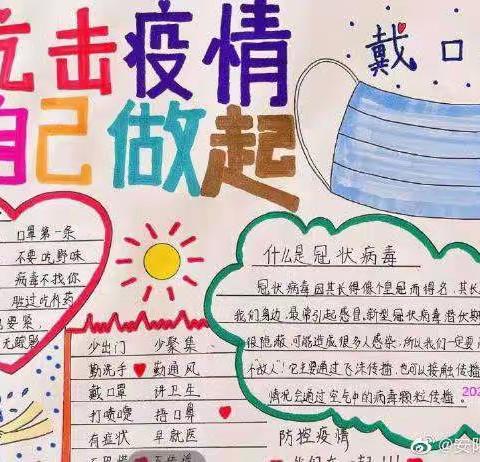 抗击疫情
自己做起
戴口
口罩第一条
不要吃野味
病毒不找你
胜过吃药
要紧，
什么是冠状病毒
冠状病毒因其长得像个皇冠而得名，其长
我们身边，最常引起感冒。新型冠状病毒潜伏期
很隐蔽，可能造成很多人感染，所以我们一定要
"故人"！它主要通过飞沫传播，也可以接触传播
情况会通过空气中的病毒颗粒传播。
少出门 少聚集
勤洗手 勤通风
戴口罩 讲卫生
打喷嚏 捂口鼻
有症状 早就医
防控疫情
202